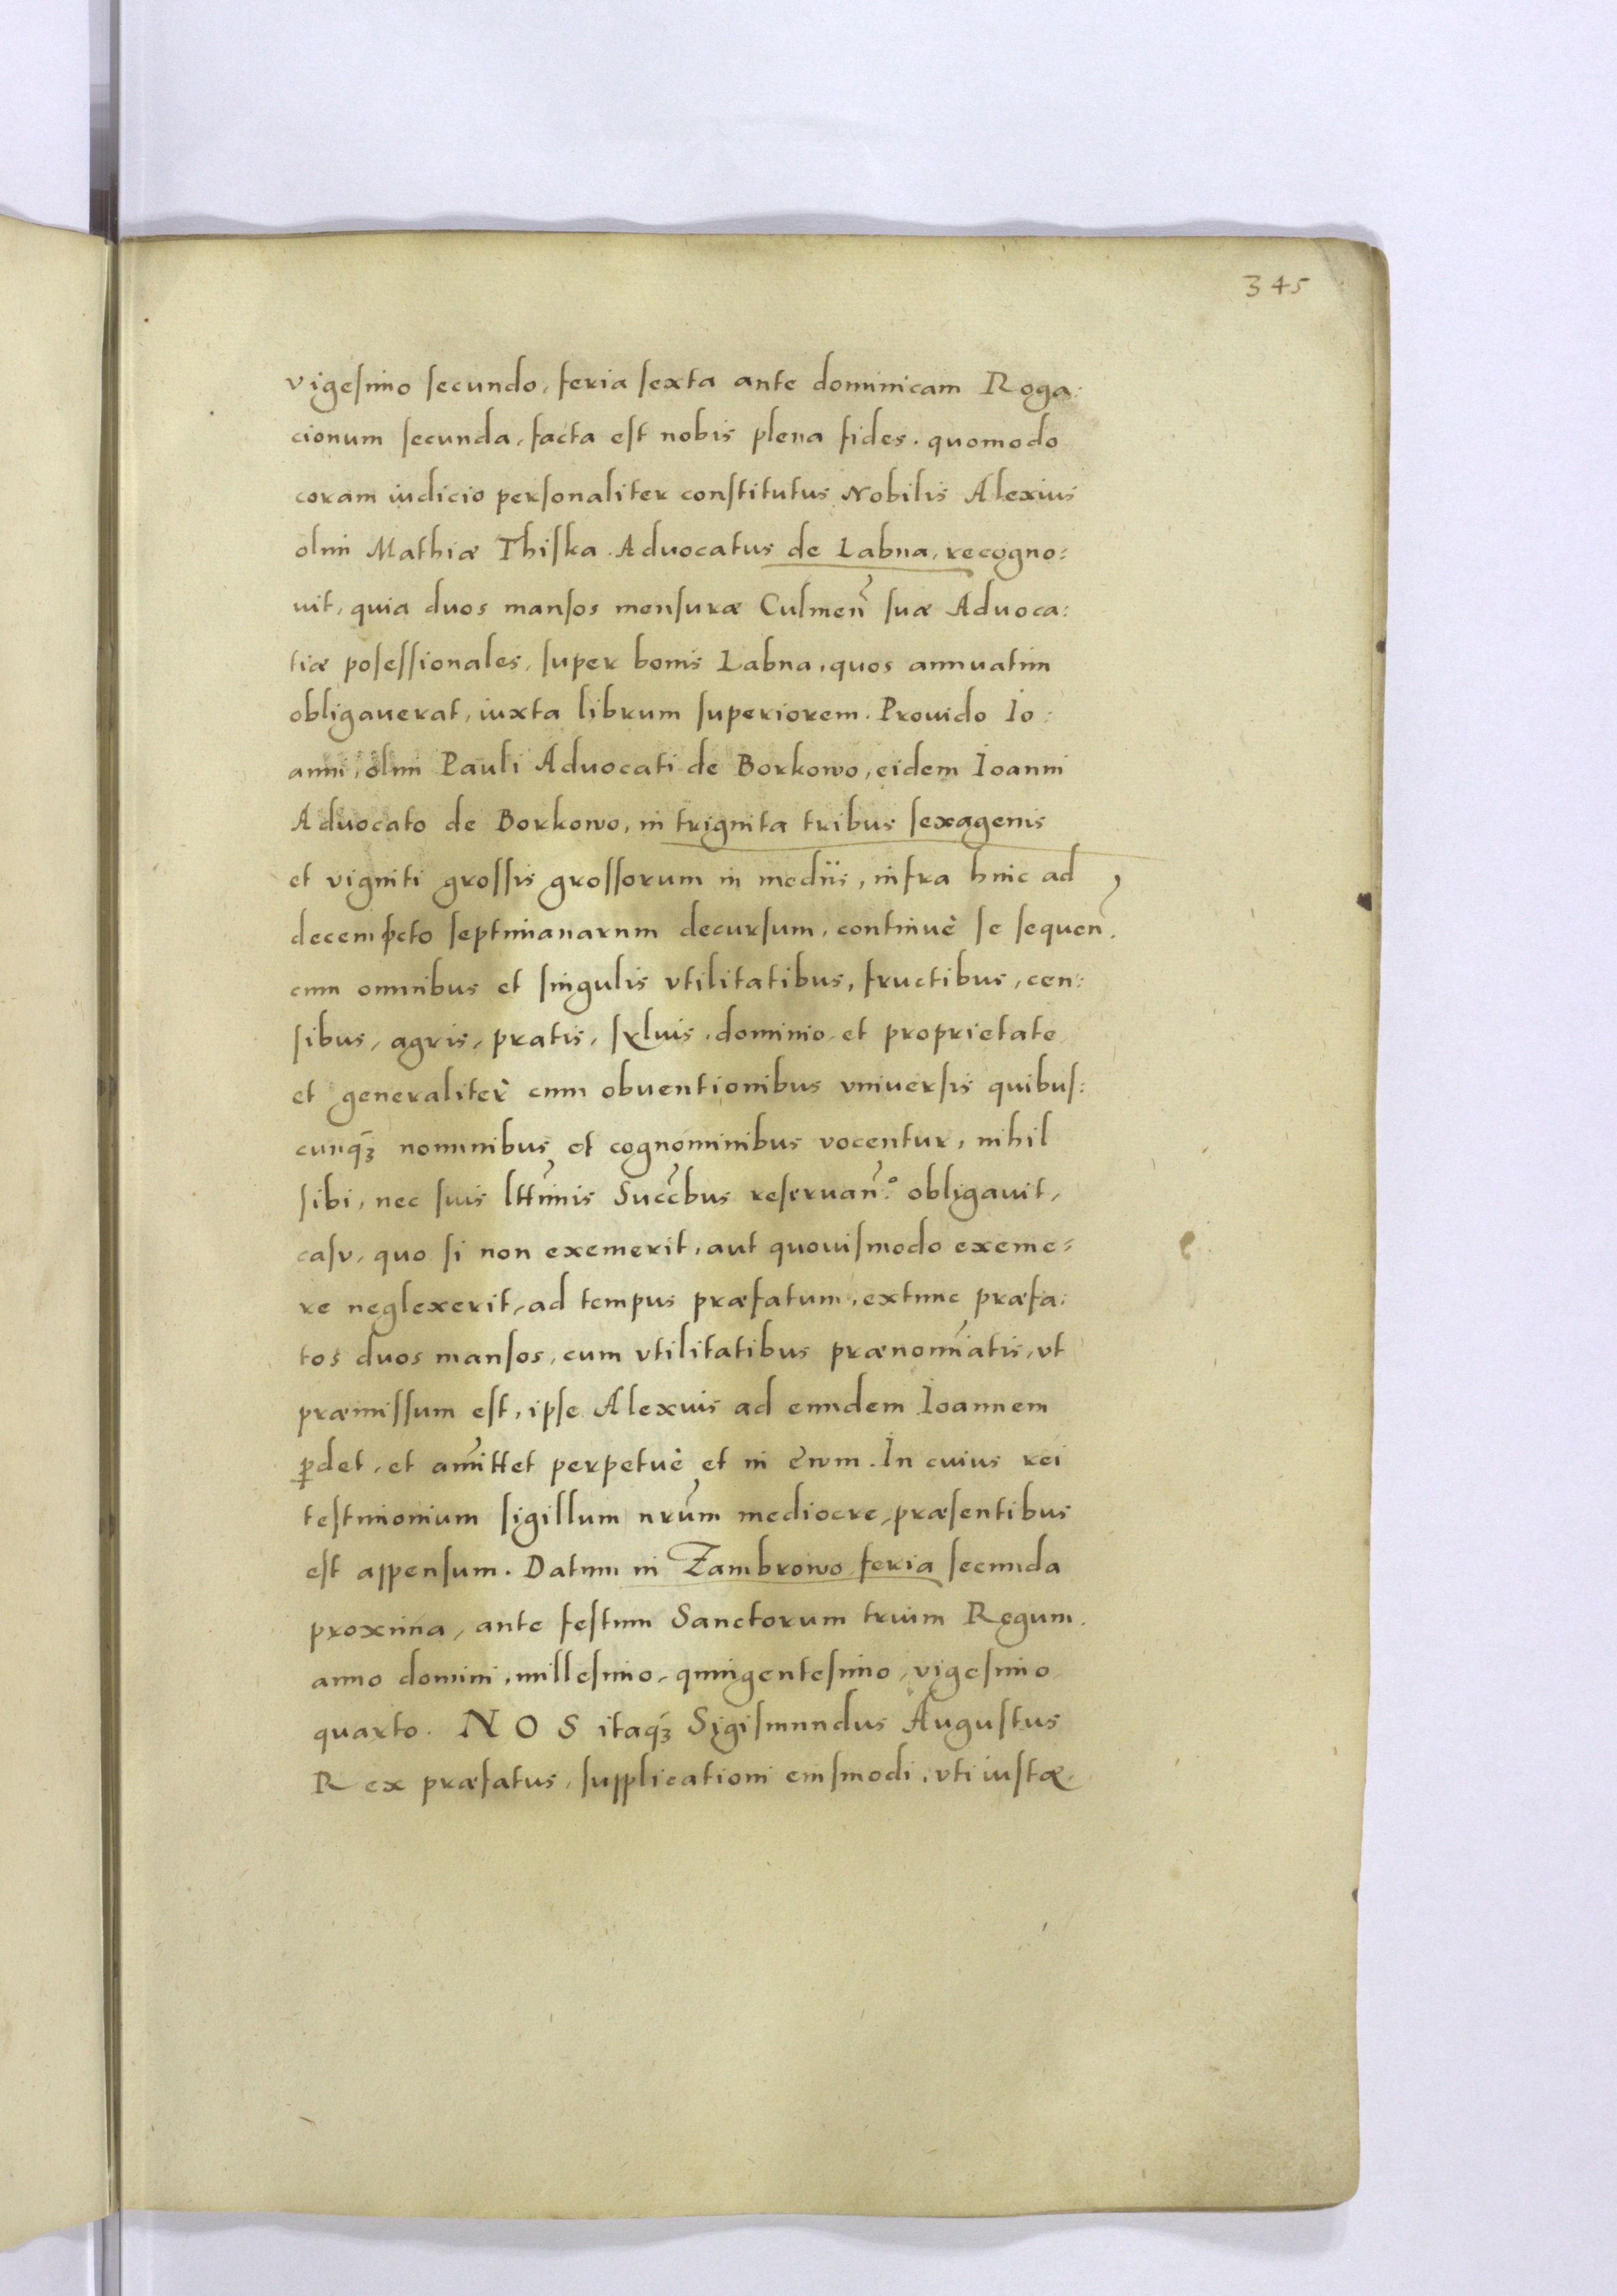 345
vigesimo secundo, feria sexta ante dominicam Roga:
cionum secunda, facta est nobis plena fides. quomodo
coram iudicio personaliter constitutus Nobilis Alexius
olim Mathiæ Thiska. Aduocatus de Labna, recogno:
uit, quia duos mansos mensuræ Culmen̄ suæ Aduoca:
tiæ posessionales, super bonis Labna, quos annuatim
obligauerat, iuxta librum superiorem. Prouido Io:
anni, olim Pauli Aduocati de Borkowo, eidem Ioanni
Aduocato de Borkowo, in triginta tribus sexagenis
et viginti grossis grossorum in mediis, infra hinc ad
decem octo septimanarum decursum, continuè se sequen̄.
cum omnibus et singulis vtilitatibus, fructibus, cen:
sibus, agris, pratis, syluis, dominio et proprietate
et generaliter cum obuentionibus vniuersis quibus:
cunqꝫ nominibus et cognominibus vocentur, nihil
sibi, nec suis lttimis Succ̄bus reseruan̄. obligauit,
casv, quo si non exemerit, aut quouismodo exeme:
re neglexerit, ad tempus præfatum, extunc præfa:
tos duos mansos, cum vtilitatibus prænomīatis, vt
præmissum est, ipse Alexius ad eundem Ioannem
ꝑdet, et amittet perpetuè et in ēwm. In cuius rei
testimonium sigillum nrūm mediocre, præsentibus
est appensum. Datum in Zambrowo feria secunda
proxima, ante festum Sanctorum trium Regum.
anno domini, millesimo, quingentesimo, vigesimo
quarto. NOS itaqꝫ Sigismundus Augustus
Rex præfatus, supplicationi eiusmodi, vti iustæ.